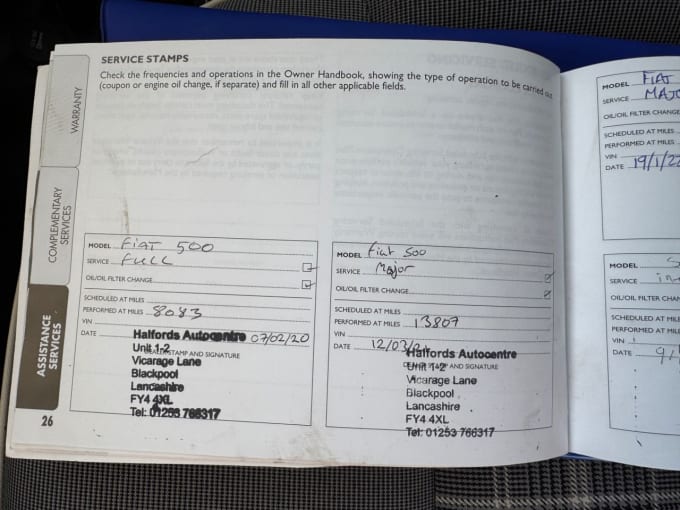 SERVICE STAMPS
Check the frequencies and operations in the Owner Handbook, showing the type of operation to be carried out
(coupon or engine oil change, if separate) and fill in all other applicable fields.
WARRANTY
COMPLEMENTARY
SERVICES
ASSISTANCE
SERVICES
MODEL Fiat 500
SERVICE FULL
OIL/OIL FILTER CHANGE
SCHEDULED AT MILES
PERFORMED AT MILES 8083
VIN
DATE 07/02/20
STAMP AND SIGNATURE
Halfords Autocentre
Unit 1-2
Vicarage Lane
Blackpool
Lancashire
FY4 4XL
Tel: 01253 766317
26
MODEL Fiat 500
SERVICE Major
OIL/OIL FILTER CHANGE
SCHEDULED AT MILES
PERFORMED AT MILES 13807
VIN
DATE 12/03/2
AND SIGNATURE
Halfords Autocentre
Unit 1-2
Vicarage Lane
Blackpool
Lancashire
FY4 4XL
Tel: 01253 766317
MODEL FIAT
SERVICE MAJO
OIL/OIL FILTER CHANGE
SCHEDULED AT MILES
PERFORMED AT MILES
VIN
DATE 19/1/22
MODEL
SERVICE in
OIL/OIL FILTER CHAN
SCHEDULED AT MILE
PERFORMED AT MILE
VIN
DATE 9/